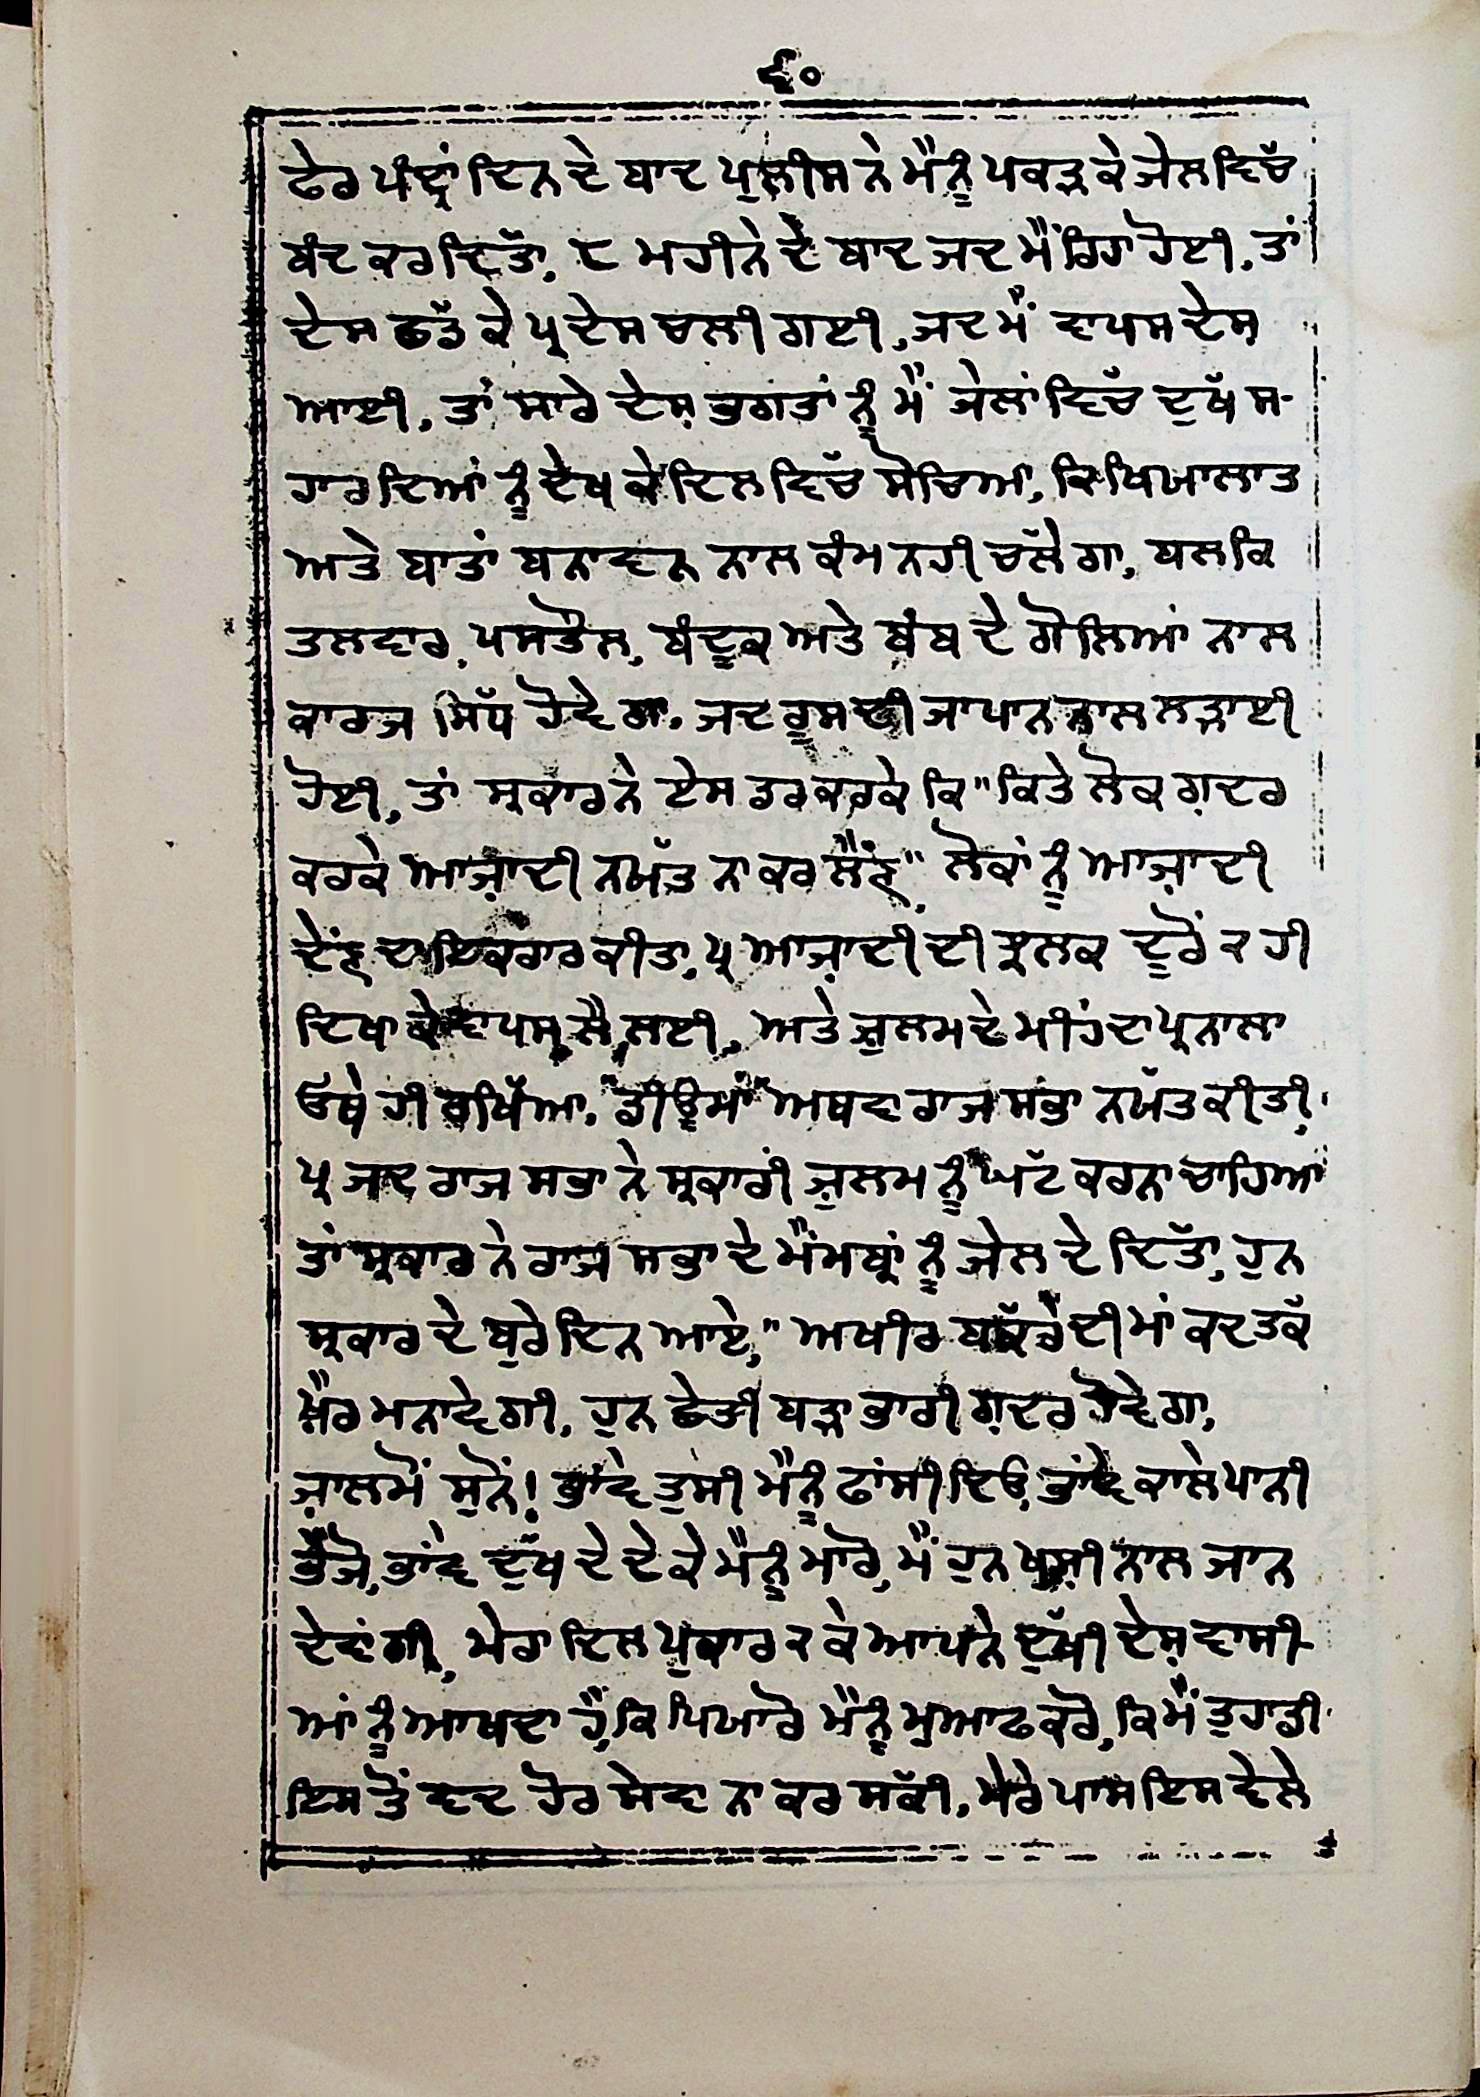 ੬੦
ਫੇਰ ਪੰਦ੍ਰਾਂ ਦਿਨ ਦੇ ਬਾਦ ਪੁਲੀਸ ਨੇ ਮੈਨੂੰ ਪਕੜ ਕੇ ਜੇਲ ਵਿੱਚ
ਬੰਦ ਕਰ ਦਿੱਤਾ. ੮ ਮਹੀਨੇ ਦੇ ਬਾਦ ਜਦ ਮੈਂ ਰਿਹਾ ਹੋਈ, ਤਾਂ
ਦੇਸ ਛਡੱ ਕੇ ਪ੍ਰਦੇਸ ਚਲੀ ਗਈ, ਜਦ ਮੈਂ ਵਾਪਸ ਦੇਸ਼
ਆਈ, ਤਾਂ ਸਾਰੇ ਦੇਸ਼ ਭਗਤਾਂ ਨੂੰ ਮੈਂ ਜੇਲਾਂ ਵਿੱਚ ਦੁਖੱ ਸ-
ਹਾਰਦਿਆਂ ਨੂੰ ਦੇਖ ਕੇ ਦਿਲ ਵਿੱਚ ਸੋਚਿਆ, ਕਿ ਖਿਆਲਾਤ
ਅਤੇ ਬਾਤਾਂ ਬਨਾਵਨ ਨਾਲ ਕੰਮ ਨਹੀ ਚਲੇੱਗਾ, ਬਲਕਿ
ਤਲਵਾਰ, ਪਸਤੌਲ, ਬੰਦੂਕ ਅਤੇ ਬੰਬ ਦੇ ਗੋਲਿਆਂ ਨਾਲ
ਕਾਰਜ ਸਿੱਧ ਹੋਵੇਗਾ. ਜਦ ਰੂਸ ਦੀ ਜਾਪਾਨ ਨਾਲ ਲੜਾਈ
ਹੋਈ, ਤਾਂ ਸ੍ਰਕਾਰ ਨੇ ਏਸ ਡਰ ਕਰਕੇ ਕਿ "ਕਿਤੇ ਲੋਕ ਗ਼ਦਰ
ਕਰਕੇ ਆਜ਼ਾਦੀ ਨਖੱਤ ਨਾ ਕਰ ਲੈਂਣ", ਲੋਕਾਂ ਨੂੰ ਆਜ਼ਾਦੀ
ਦੇਂਣ ਦਾ ਇਕਰਾਰ ਕੀਤਾ, ਪ੍ਰ ਆਜ਼ਾਦੀ ਦੀ ਝਲਕ ਦੂਰੋਂ ੨ ਹੀ
ਦਿਖਾ ਕੇ ਵਾਪਸ ਲੈ ਲਈ, ਅਤੇ ਜ਼ੁਲਮ ਦੇ ਮੀਂਹ ਦਾ ਪ੍ਰਨਾਲਾ
ਓਥੇ ਹੀ ਰਖਿੱਆ. "ਡੀਊਮਾਂ" ਅਥਵਾ ਰਾਜ ਸਭਾ ਨਖੱਤ ਕੀਤੀ,
ਪ੍ਰ ਜਦ ਰਾਜ ਸਭਾ ਨੇ ਸ੍ਰਕਾਰੀ ਜ਼ੁਲਮ ਨੂੰ ਘੱਟ ਕਰਨਾ ਚਾਹਿਆ
ਤਾਂ ਸ੍ਰਕਾਰ ਨੇ ਰਾਜ ਸਭਾ ਦੇ ਮੈਂਮਬ੍ਰਾਂ ਨੂੰ ਜੇਲ ਦੇ ਦਿੱਤਾ, ਹੁਨ
ਸ੍ਰਕਾਰ ਦੇ ਬੁਰੇ ਦਿਨ ਆਏ," ਅਖੀਰ ਬਕੱਰੇ ਦੀ ਮਾਂ ਕਦ ਤਕੱ
ਖ਼ੈਰ ਮਨਾਵੇਗੀ. ਹੁਨ ਛੇਤੀ ਬੜਾ ਭਾਰੀ ਗ਼ਦਰ ਹੋਵੇਗਾ,
ਜ਼ਾਲਮੋਂ ਸੁਨੋਂ! ਭਾਂਵੇ ਤੁਸੀ ਮੈਨੂੰ ਫਾਂਸੀ ਦਿਓ, ਭਾਂਵੇ ਕਾਲੇ ਪਾਨੀ
ਭੇੱਜੋ, ਭਾਂਵੇ ਦੁੱਖ ਦੇ ਦੇ ਕੇ ਮੈਨੂੰ ਮਾਰੋ, ਮੈਂ ਹੁਨ ਖੁਸ਼ੀ ਨਾਲ ਜਾਨ
ਦੇਵਾਂਗੀ, ਮੇਰਾ ਦਿਲ ਪੁਕਾਰ ੨ ਕੇ ਆਪਨੇ ਦੁੱਖੀ ਦੇਸ਼ ਵਾਸੀ-
ਆਂ ਨੂੰ ਆਖਦਾ ਹੈ, ਕਿ ਪਿਆਰੋ ਮੈਨੂੰ ਮੁਆਫ ਕਰੋ, ਕਿ ਮੈਂ ਤੁਹਾਡੀ
ਇਸ ਤੋਂ ਵਾਦ ਹੋਰ ਸੇਵਾ ਨਾ ਕਰ ਸਕੱੀ, ਮੇਰੇ ਪਾਸ ਇਸ ਵੇਲੇ